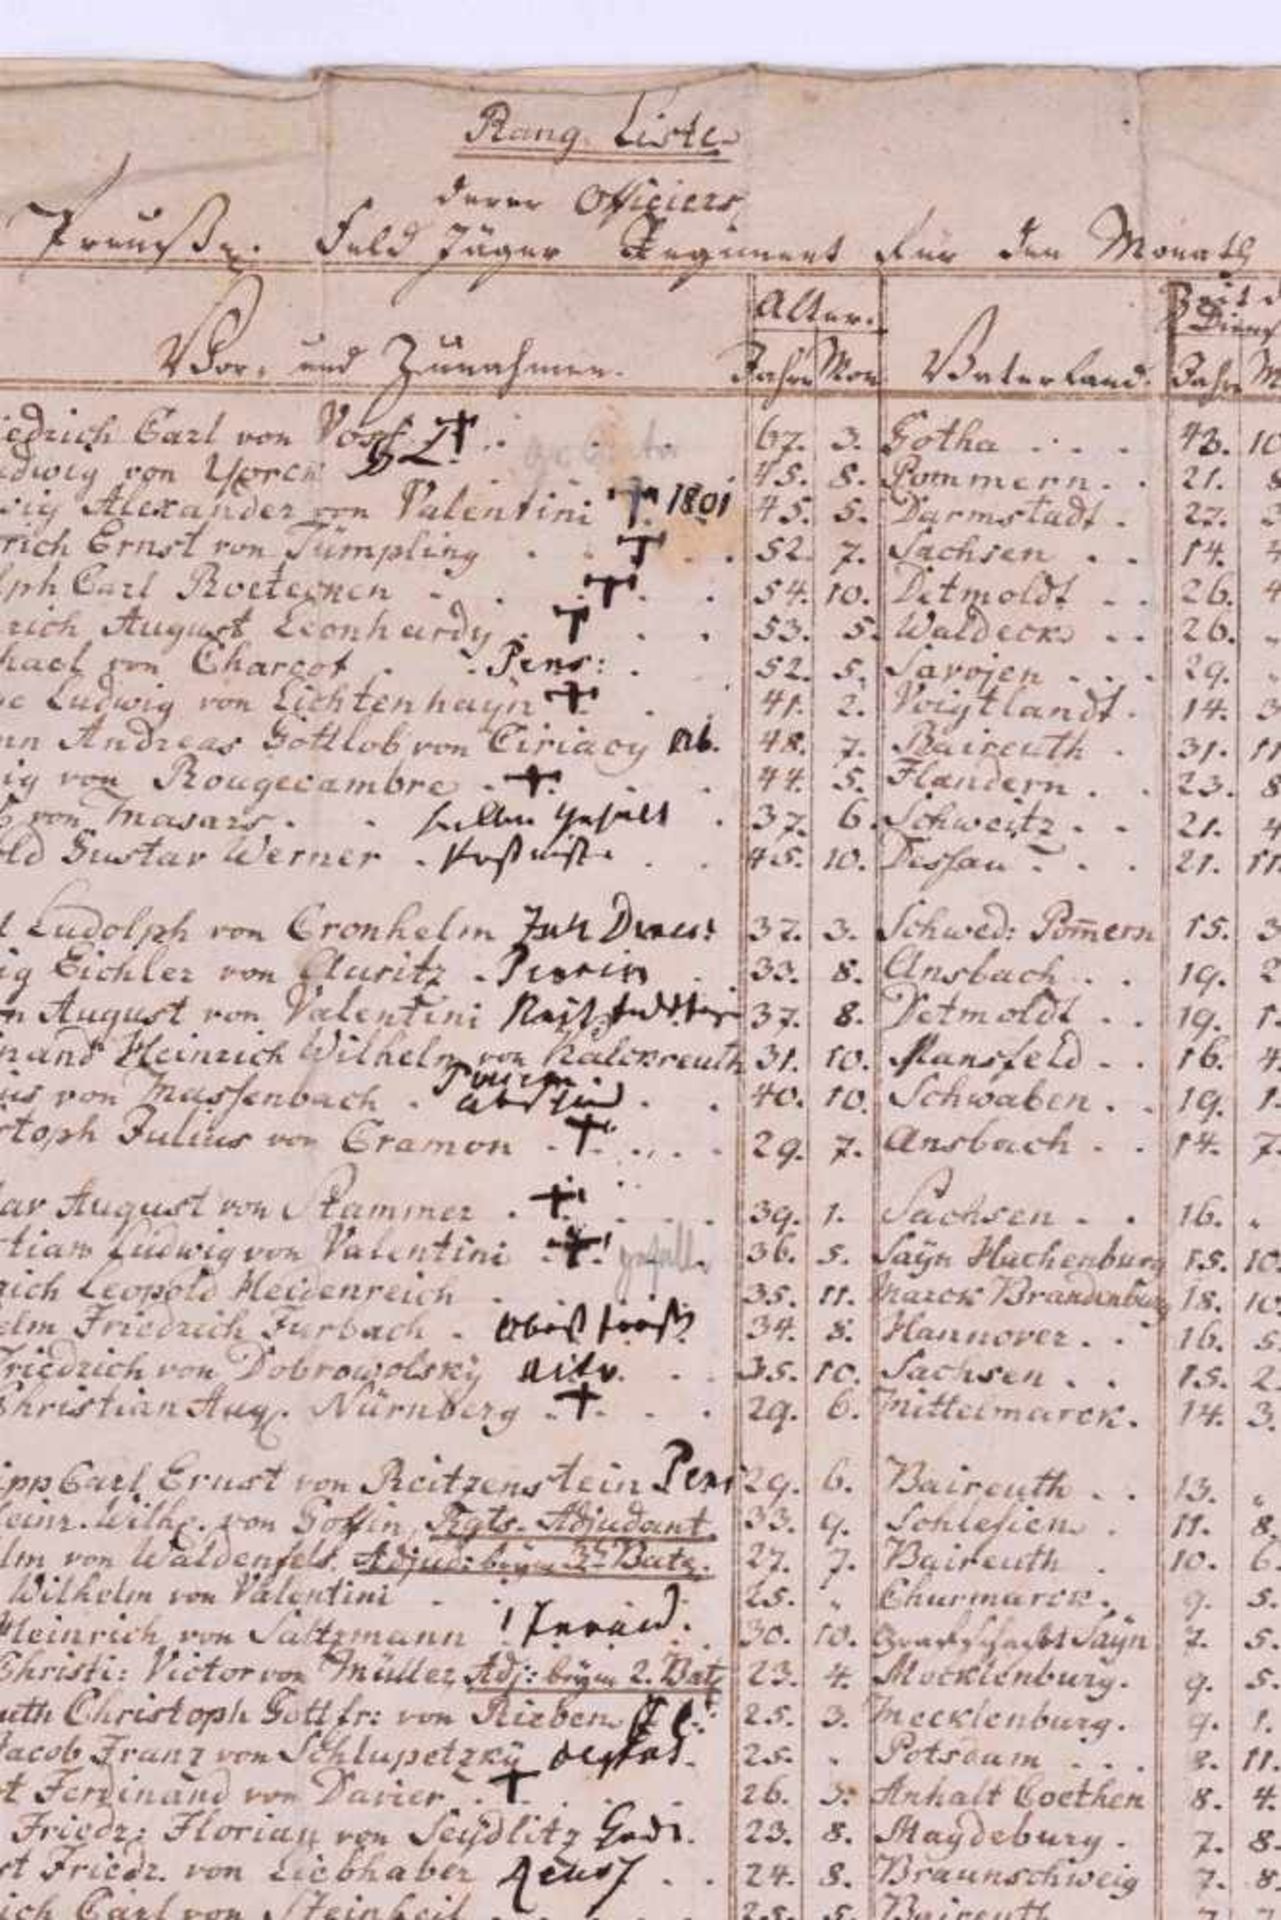 Rang Liste
derer Officiers
Preuß. Feld Jäger Regiment für den Monath
Vor, und Zunahmen. Alter. Jahre Mon Vaterland. Zeit Dienst Jahre M
iedrich Carl von Voss 67. 3. Gotha 43. 10
udwig von Yorck 45. 8. Pommern. 21. 8
wig Alexander von Valentini 1801 45. 5. Darmstadt. 27. 3
rich Ernst von Tümpling 52. 7. Sachsen 14. 4
lph Carl Roeteenen 54. 10. Detmoldt 26. 4
rich August Leonhardy 53. 5. Waldeck 26.
hael von Charcot Pens: 52. 5. Savojen 29.
pe Ludwig von Lichtenhayn 41. 2. Voigtlandt. 14. 3
nn Andreas Gottlob von Ciriacy 48. 7. Baireuth 31. 11
ig von Rougecambre 44. 5. Flandern. 23. 8
von Masars halben Gehalt 37. 6. Schweitz 21. 4
old Gustav Werner 45. 10. Dessau 21. 11
l Ludolph von Cronhelm 37. 3. Schwed: Pom̄ern 15. 3
ig Eichler von Auritz 33. 8. Ansbach 19. 2
n August von Valentini 37. 8. Detmoldt 19. 1
inand Heinrich Wilhelm von Kalckreuth 31. 10. Mansfeld 16. 4
us von Massenbach 40. 10. Schwaben 19. 1
stoph Julius von Cramon 29. 7. Ansbach 14. 7
av August von Stammer 39. 1. Sachsen 16.
stian Ludwig von Valentini 36. 5. Sayn Hachenburg 15. 10
rich Leopold Heidenreich 35. 11. Marck Brandenburg 18. 10
elm Friedrich Furbach 34. 8. Hannover 16. 5
Friedrich von Dobrowolsky 35. 10. Sachsen 15. 2
Christian Aug. Nürnberg 29. 6. Mittelmarck. 14. 3
ipp Carl Ernst von Reitzenstein Pens 29. 6. Baireuth 13.
Heinr. Wilh. von Goffin Rgts. Adjudant. 33. 9. Schlesien 11. 8
lm von Waldenfels. Adjud: beym 3t. Bat. 27. 7. Baireuth 10. 6
Wilhelm von Valentini 25. Churmarck. 9. 5
Heinrich von Saltzmann 30. 10. Sayn 7. 5
Christi: Victor von Müller Adj: beym 2. Bat 23. 4. Mecklenburg. 9. 5
uth Christoph Gottfr: von Rieben 25. 3. Mecklenburg. 9. 1
Jacob Franz von Schlupetzky 25. Potsdam 8. 11
t Ferdinand von Davier 26. 3. Anhalt Coethen 8. 4
Friedr: Florian von Seydlitz 23. 8. Magdeburg. 7. 8
st Friedr. von Liebhaber 24. 8. Braunschweig 7. 8
ich Carl von Steinheil 25. 5. Baireuth